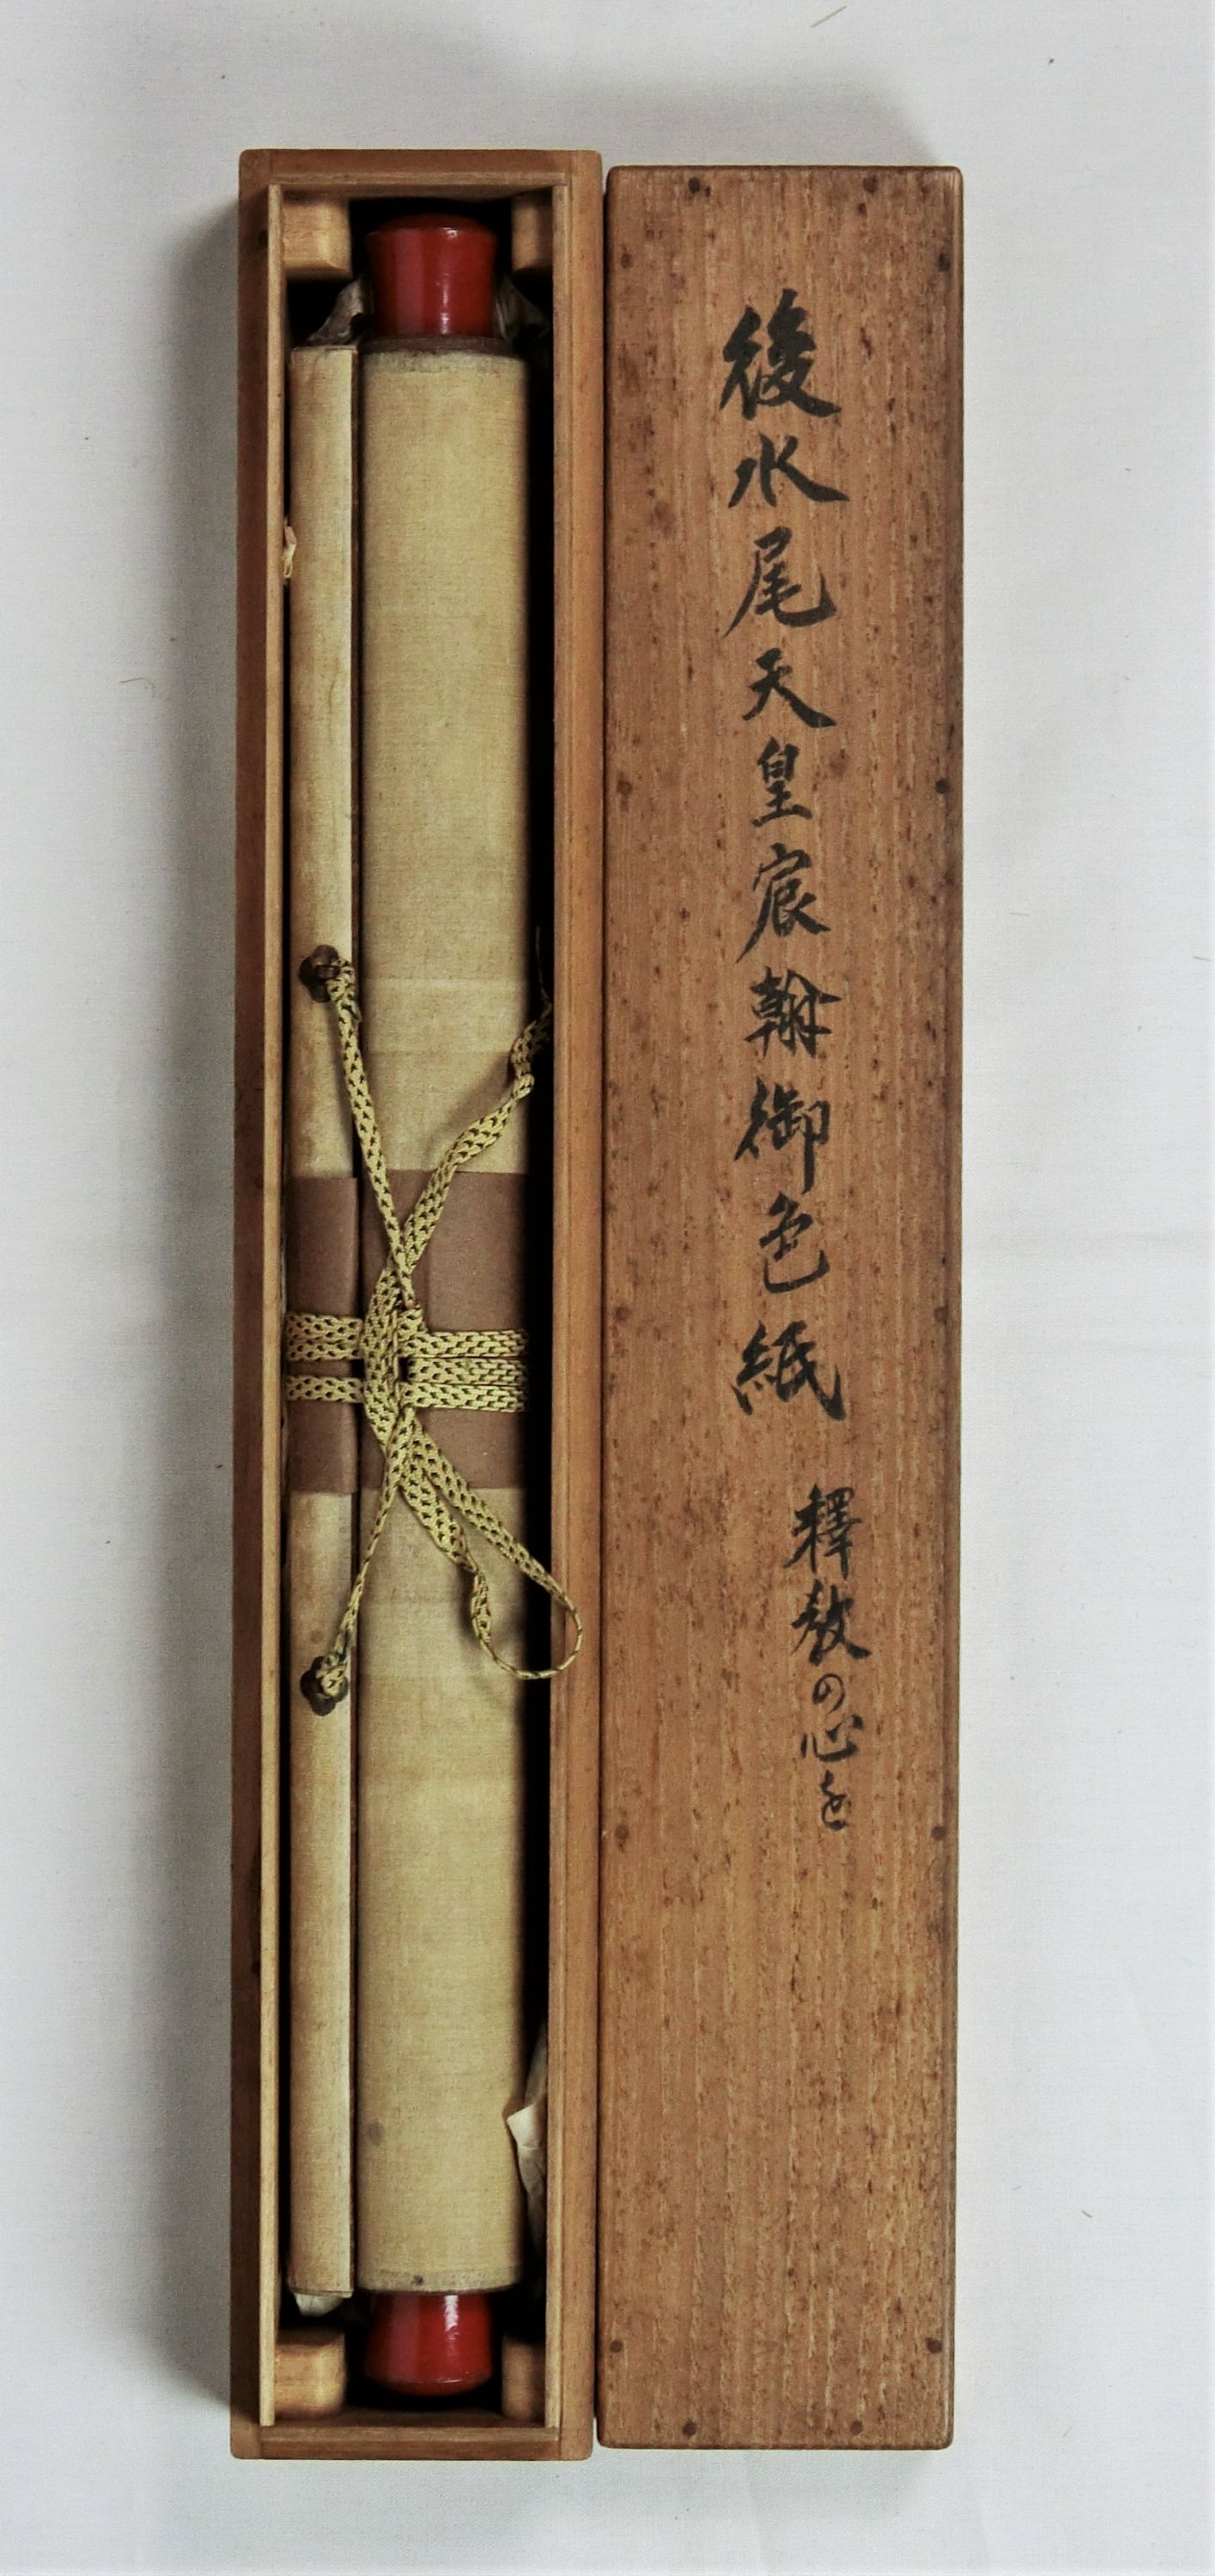 後水尾天皇宸翰御色紙
釋教の心を